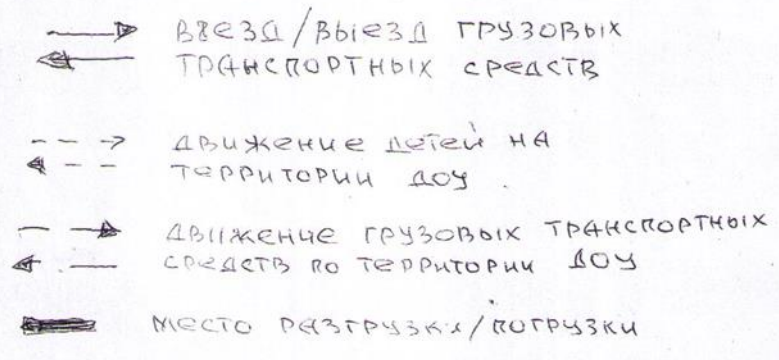 Въезд/выезд грузовых
транспортных средств
движение детей на
территории ДОУ
движение грузовых транспортных
средств по территории ДОУ
место разгрузки/погрузки